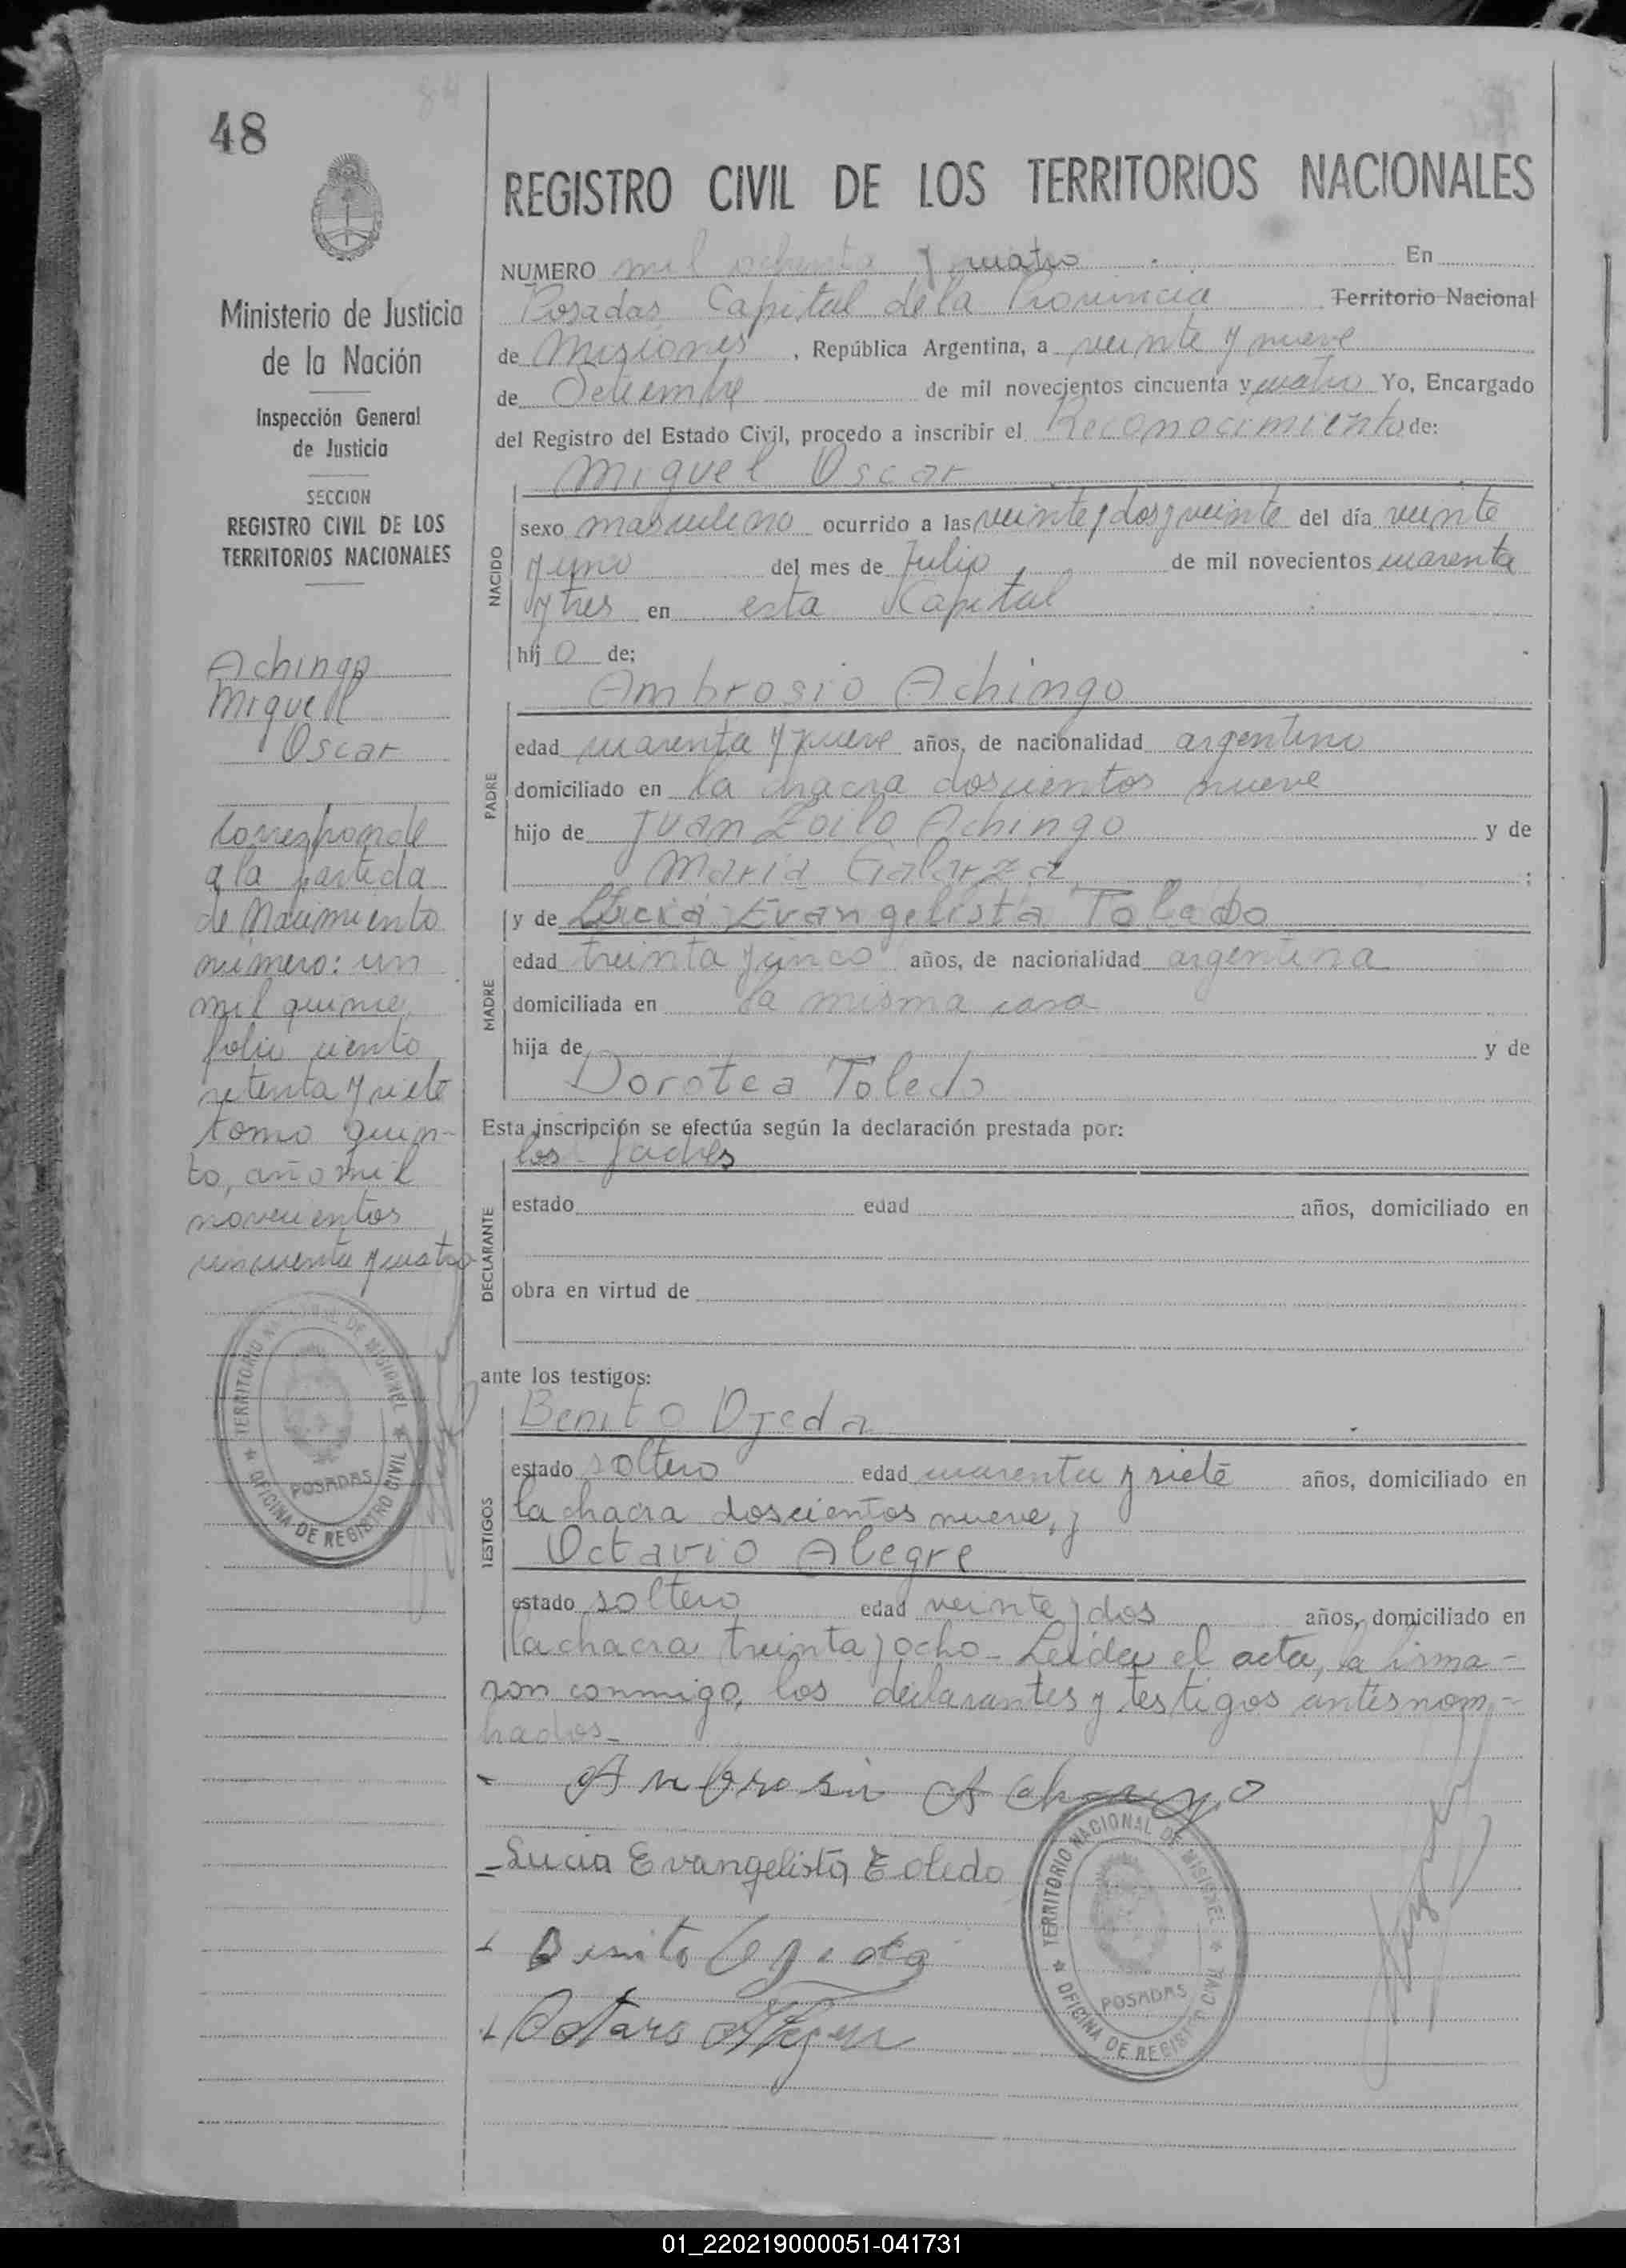 48
Ministerio de Justicia
de la Nación
Inspección General
de Justicia
SECCION
REGISTRO CIVIL DE LOS
TERRITORIOS NACIONALES
Achingo
Miguel
Oscar
Corresponde
a la partida
de Nacimiento
numero: un
mil quince,
folio ciento
setenta y siete
tomo quin-
to, año mil
novecientos
cincuenta y cuatro
TERRITORIO NACIONAL DE MISIONES
POSADAS
OFICINA DE REGISTRO CIVIL
REGISTRO CIVIL DE LOS TERRITORIOS NACIONALES
NUMERO mil ochenta y cuatro En
Posadas Capital de la Provincia Territorio Nacional
de Misiones, República Argentina, a veinte y nueve
de Setiembre de mil novecientos cincuenta y cuatro Yo, Encargado
del Registro del Estado Civil, procedo a inscribir el Reconocimiento de:
Miguel Oscar
NACIDO
sexo masculino ocurrido a las veinte y dos y veinte del día veinte
y uno del mes de Julio de mil novecientos cuarenta
y tres en esta Capital
hij o de:
Ambrosio Achingo
PADRE
edad cuarenta y nueve años, de nacionalidad argentino
domiciliado en la chacra doscientos nueve
hijo de Juan Zoilo Achingo y de
Maria Galarza ;
y de Lucia Evangelista Toledo
MADRE
edad treinta y cinco años, de nacionalidad argentina
domiciliada en la misma casa
hija de y de
Dorotea Toledo
Esta inscripción se efectúa según la declaración prestada por:
los padres
DECLARANTE
estado edad años, domiciliado en
obra en virtud de
ante los testigos:
Benito Ojeda
TESTIGOS
estado soltero edad cuarenta y siete años, domiciliado en
la chacra doscientos nueve, y
Octavio Alegre
estado soltero edad veinte y dos años, domiciliado en
la chacra treinta y ocho - Leída el acta, la firma-
ron conmigo, los declarantes y testigos antes nom-
brados -
Ambrosio Achingo
- Lucia Evangelista Toledo
Benito Ojeda
Octavo Alegre
TERRITORIO NACIONAL DE MISIONES
POSADAS
OFICINA DE REGISTRO CIVIL
01_220219000051-041731